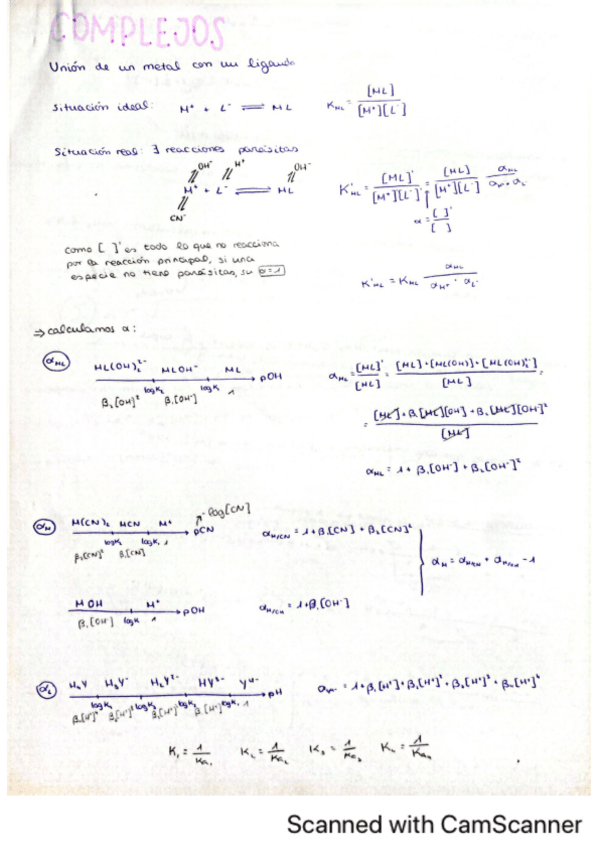 COMPLEJOS
Unión de un metal con un ligando
Situación ideal: M⁺ + L⁻ ⇌ ML K_ML = [ML] / [M⁺][L⁻]
Situación real: ∃ reacciones parásitas
OH⁻ H⁺ OH⁻
M⁺ + L⁻ ⇌ ML
CN⁻
K'_ML = [ML]' / [M⁺][L⁻]' = [ML] / [M⁺][L⁻] · α_ML / α_M⁺·α_L
α = [ ]' / [ ]
como [ ]' es todo lo que no reacciona
por la reacción principal, si una
especie no tiene parásitas, su α=1
K'_ML = K_ML α_ML / α_M⁺ · α_L
⇒ calculamos α:
α_ML
ML(OH)₂²⁻ MLOH⁻ ML
logK₂ logK₁ pOH
β₂[OH]² β₁[OH⁻] 1
α_ML = [ML]' / [ML] = [ML]+[ML(OH)]+[ML(OH)₂²⁻] / [ML] =
= [ML]+β₁[ML][OH]+β₂[ML][OH]² / [ML]
α_ML = 1+β₁[OH⁻]+β₂[OH⁻]²
α_M
M(CN)₂ MCN M⁺ -log[CN]
logK₂ logK₁ 1 pCN
β₂[CN]² β₁[CN]
α_M/CN = 1+β₁[CN]+β₂[CN]²
MOH M⁺ pOH
β₁[OH⁻] logK 1
α_M/OH = 1+β₁[OH⁻]
α_M = α_M/CN + α_M/OH - 1
α_L
H₄Y H₃Y⁻ H₂Y²⁻ HY³⁻ Y⁴⁻ pH
logK₄ logK₃ logK₂ logK₁ 1
β₄[H⁺]⁴ β₃[H⁺]³ β₂[H⁺]² β₁[H⁺]
= 1+β₁[H⁺]+β₂[H⁺]²+β₃[H⁺]³+β₄[H⁺]⁴
K₁ = 1/Ka₁ K₂ = 1/Ka₂ K₃ = 1/Ka₃ K₄ = 1/Ka₄
Scanned with CamScanner